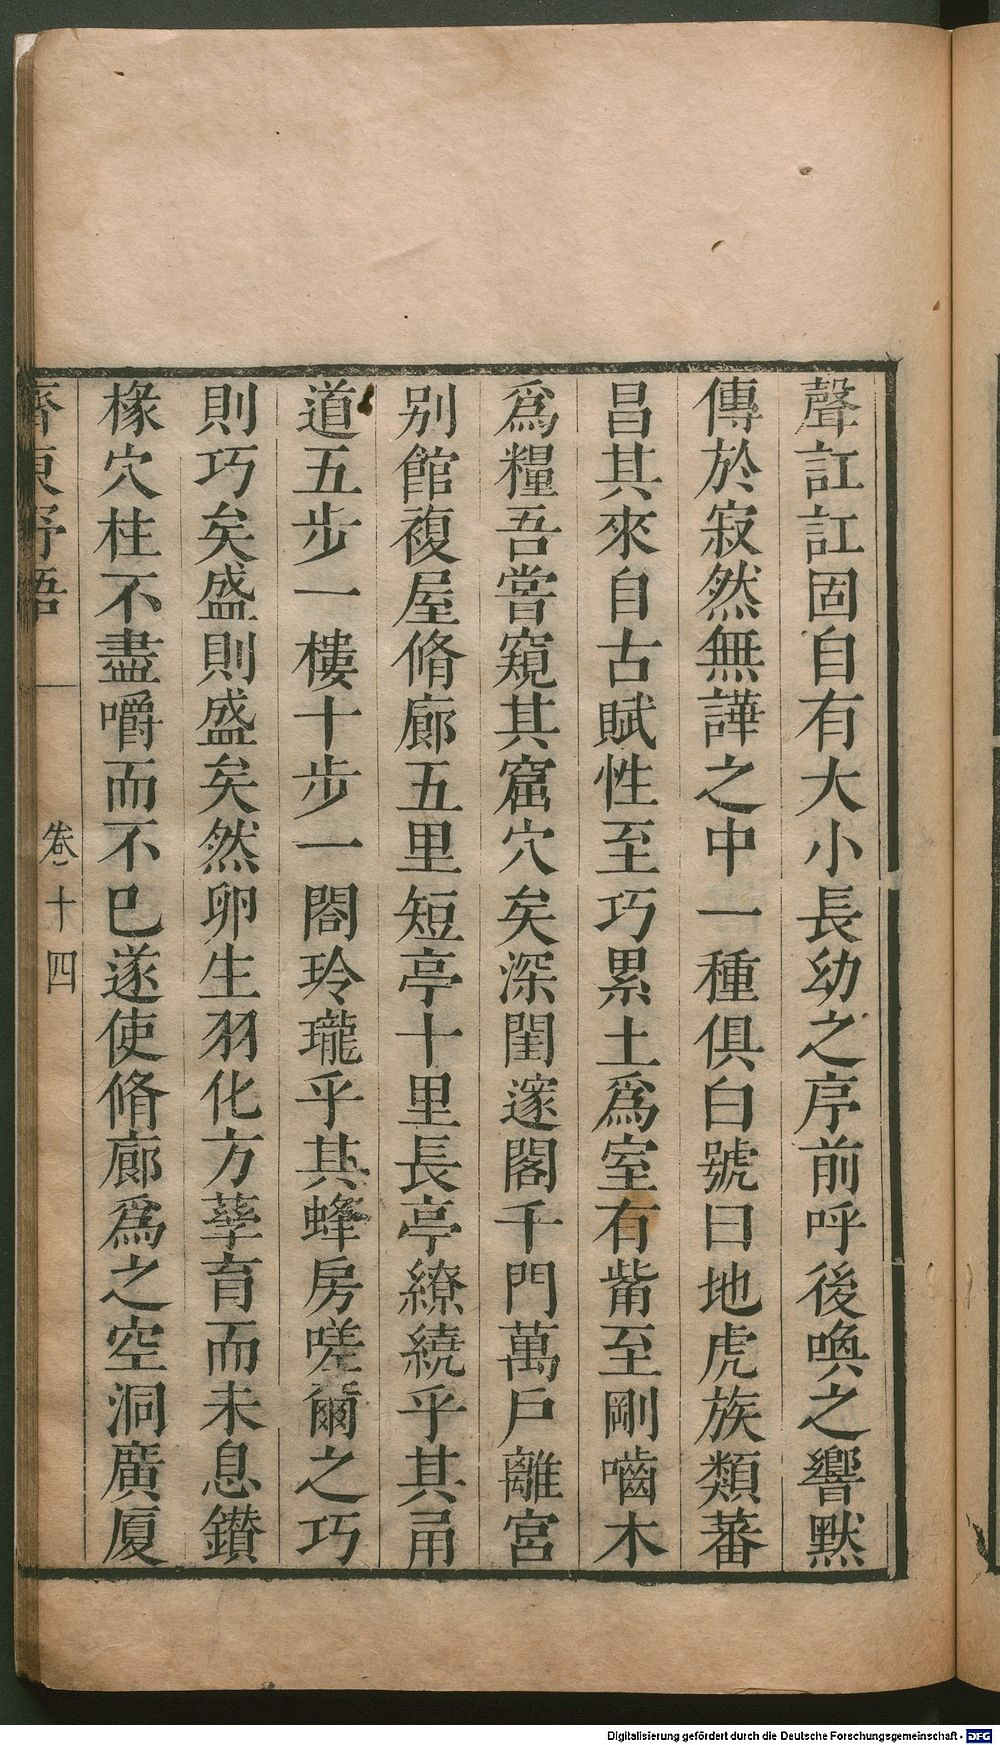 聲訌訌固自有大小長幼之序前呼後喚之響黙
傳於寂然無譁之中一種俱白號曰地虎族類蕃
昌其來自古賦性至巧累土爲室有觜至剛嚙木
爲糧吾嘗窺其窟穴矣深閨邃閣千門萬戶離宮
别館複屋脩廊五里短亭十里長亭繚繞乎其甬
道五步一樓十步一閣玲瓏乎其蜂房嗟爾之巧
則巧矣盛則盛矣然卵生羽化方孳育而未息鑚
椽穴柱不盡嚼而不巳遂使脩廊爲之空洞廣厦
齊東野語
卷十四
Digitalisierung gefördert durch die Deutsche Forschungsgemeinschaft - DFG